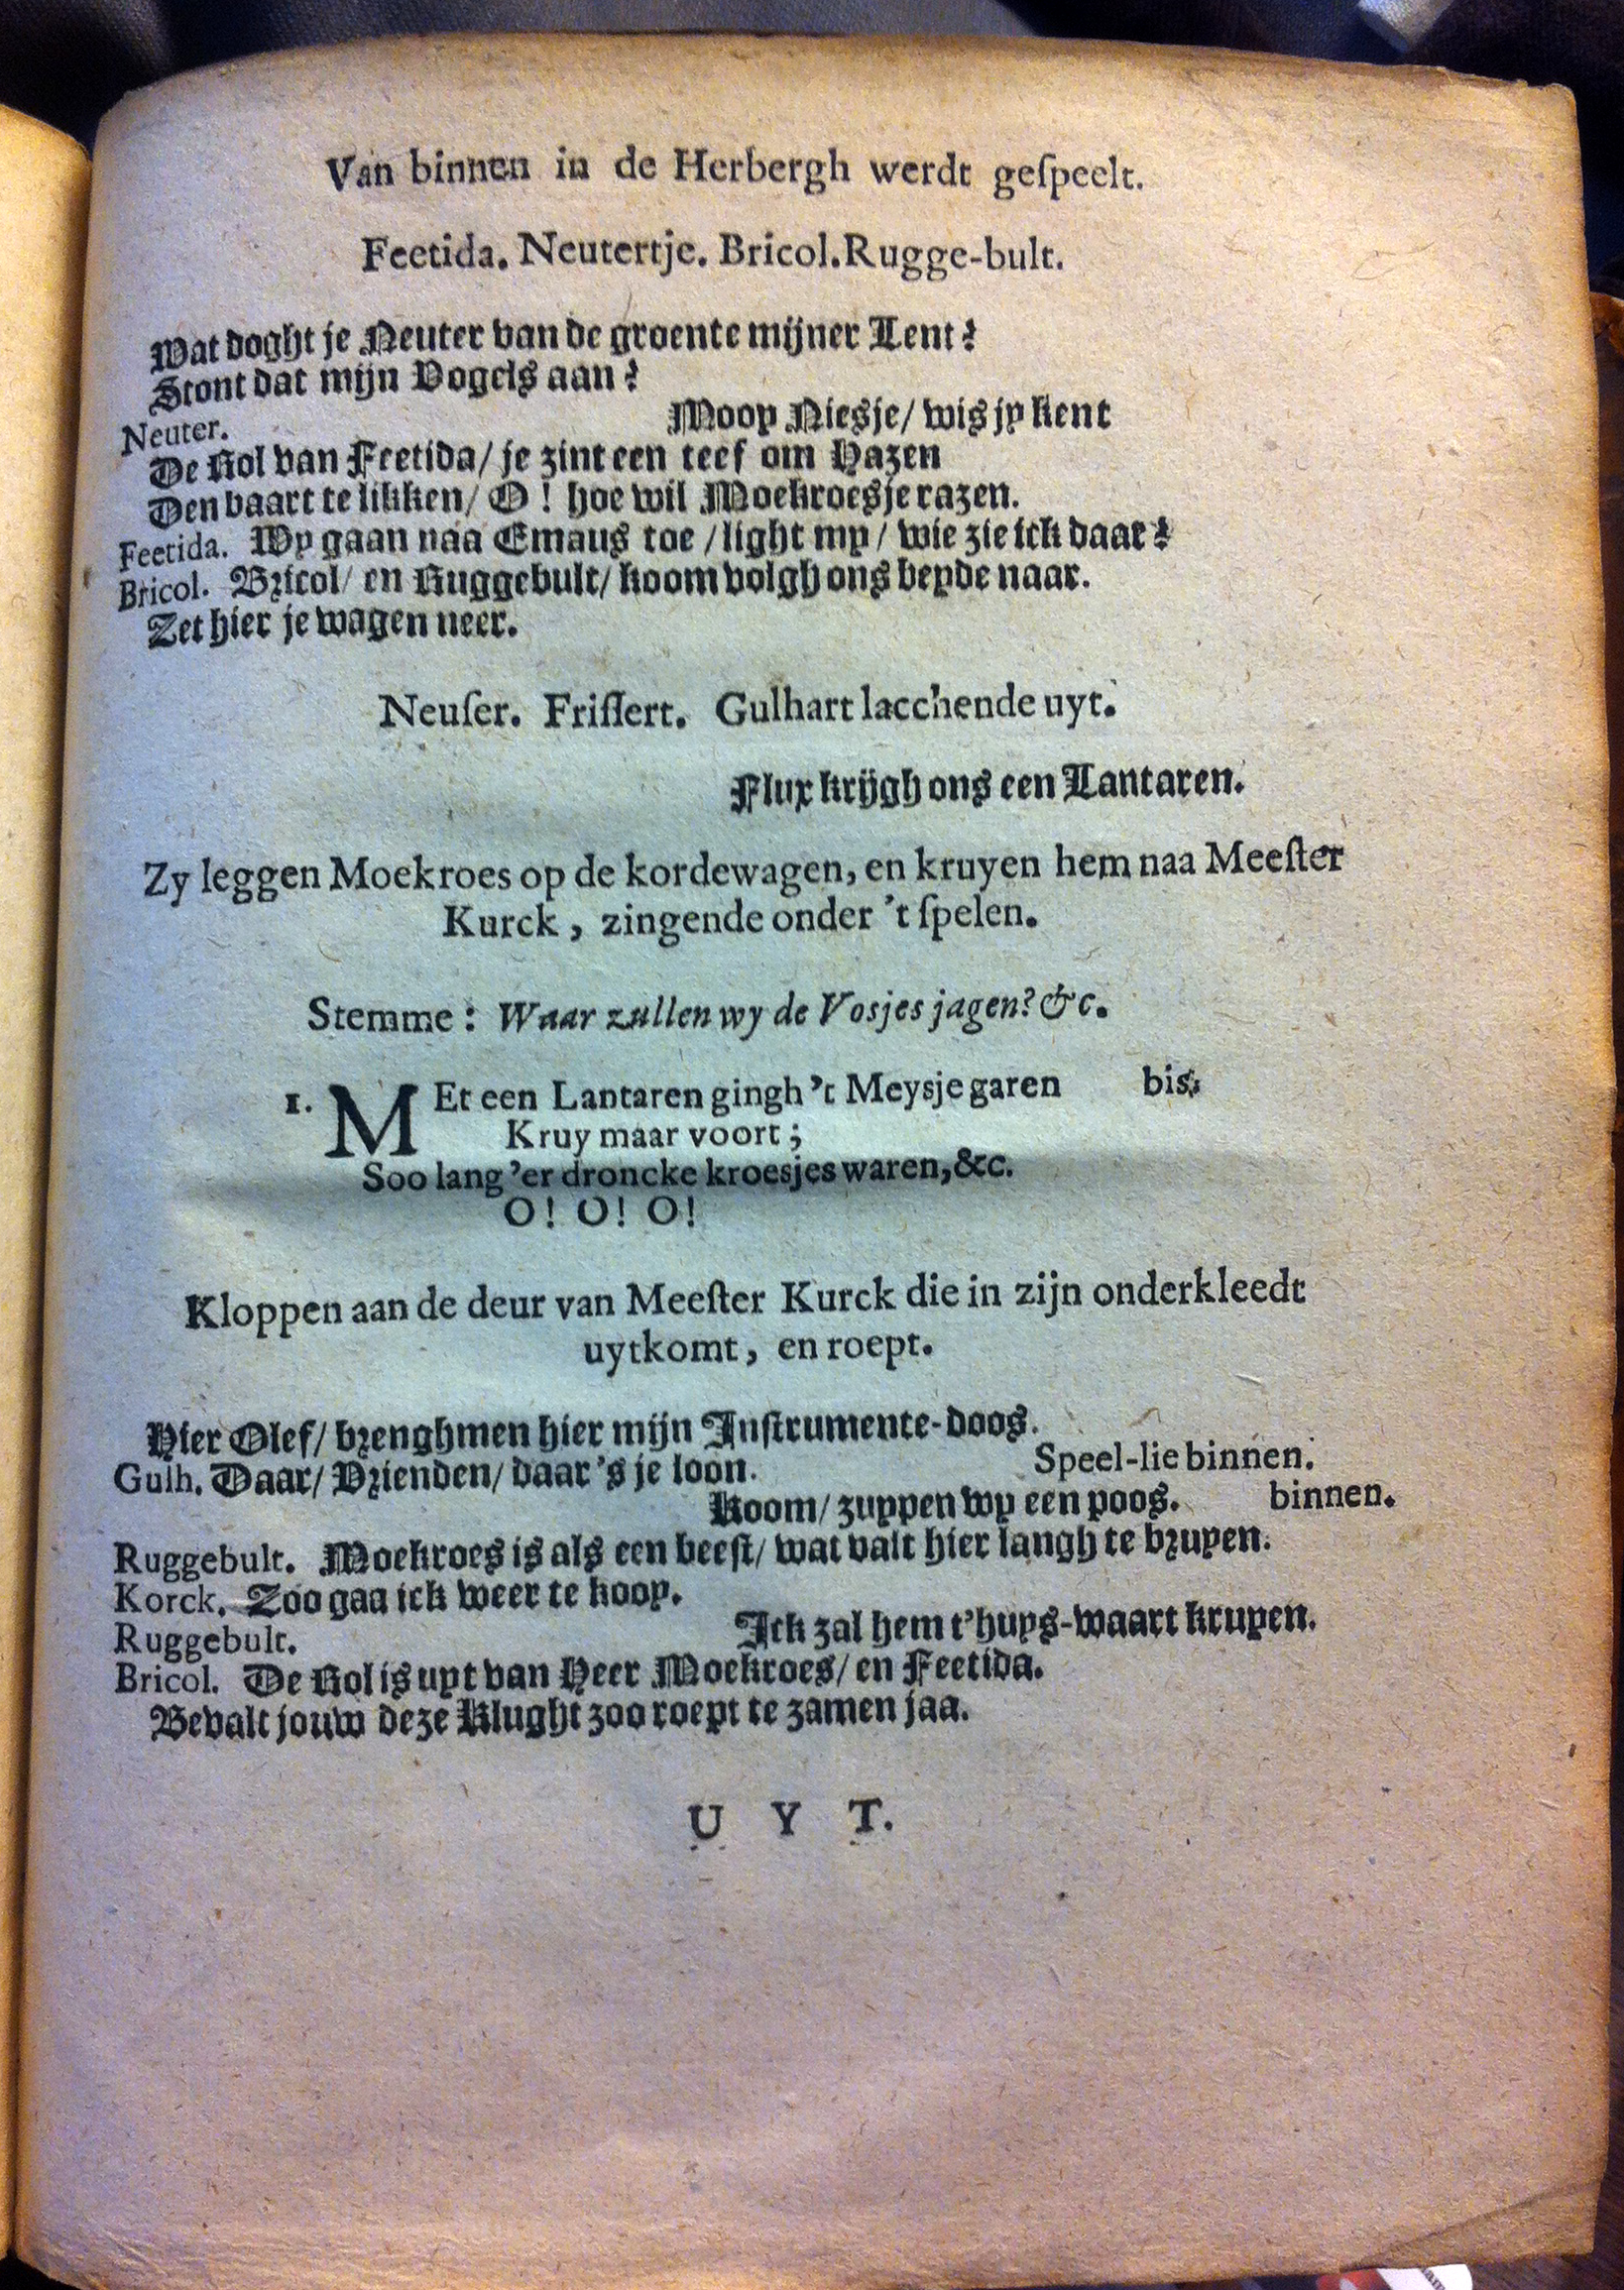 Van binnen in de Herbergh werdt geſpeelt.
Feetida. Neutertje. Bricol. Rugge-bult.
Wat doght je Neuter van de groente mijner Lent?
Stont dat mijn Vogels aan?
Neuter. Mooy Niesje/ wis jy kent
De Rol van Feetida/ je zint een teef om Hazen
Den baart te likken/ O! hoe wil Moekroesje razen.
Feetida. Wy gaan naa Emaus toe/ light my/ wie zie ick daar?
Bricol. Bricol/ en Ruggebult/ koom volgh ons beyde naar.
Zet hier je wagen neer.
Neuſer. Friſſert. Gulhart lacchende uyt.
Flux krijgh ons een Lantaren.
Zy leggen Moekroes op de kordewagen, en kruyen hem naa Meeſter
Kurck, zingende onder 't ſpelen.
Stemme: Waar zullen wy de Vosjes jagen? &c.
1. MEt een Lantaren gingh 't Meysje garen bis.
Kruy maar voort;
Soo lang 'er droncke kroesjes waren, &c.
O! O! O!
Kloppen aan de deur van Meeſter Kurck die in zijn onderkleedt
uytkomt, en roept.
Hier Olef/ brenghmen hier mijn Inſtrumente-doos.
Gulh. Daar/ Vrienden/ daar 's je loon. Speel-lie binnen.
Koom/ zuppen wy een poos. binnen.
Ruggebult. Moekroes is als een beeſt/ wat valt hier langh te bruyen.
Korck. Zoo gaa ick weer te kooy.
Ruggebult. Ick zal hem t'huys-waart kruyen.
Bricol. De Rol is uyt van Heer Moekroes/ en Feetida.
Bevalt jouw deze Klught zoo roept te zamen jaa.
U Y T.